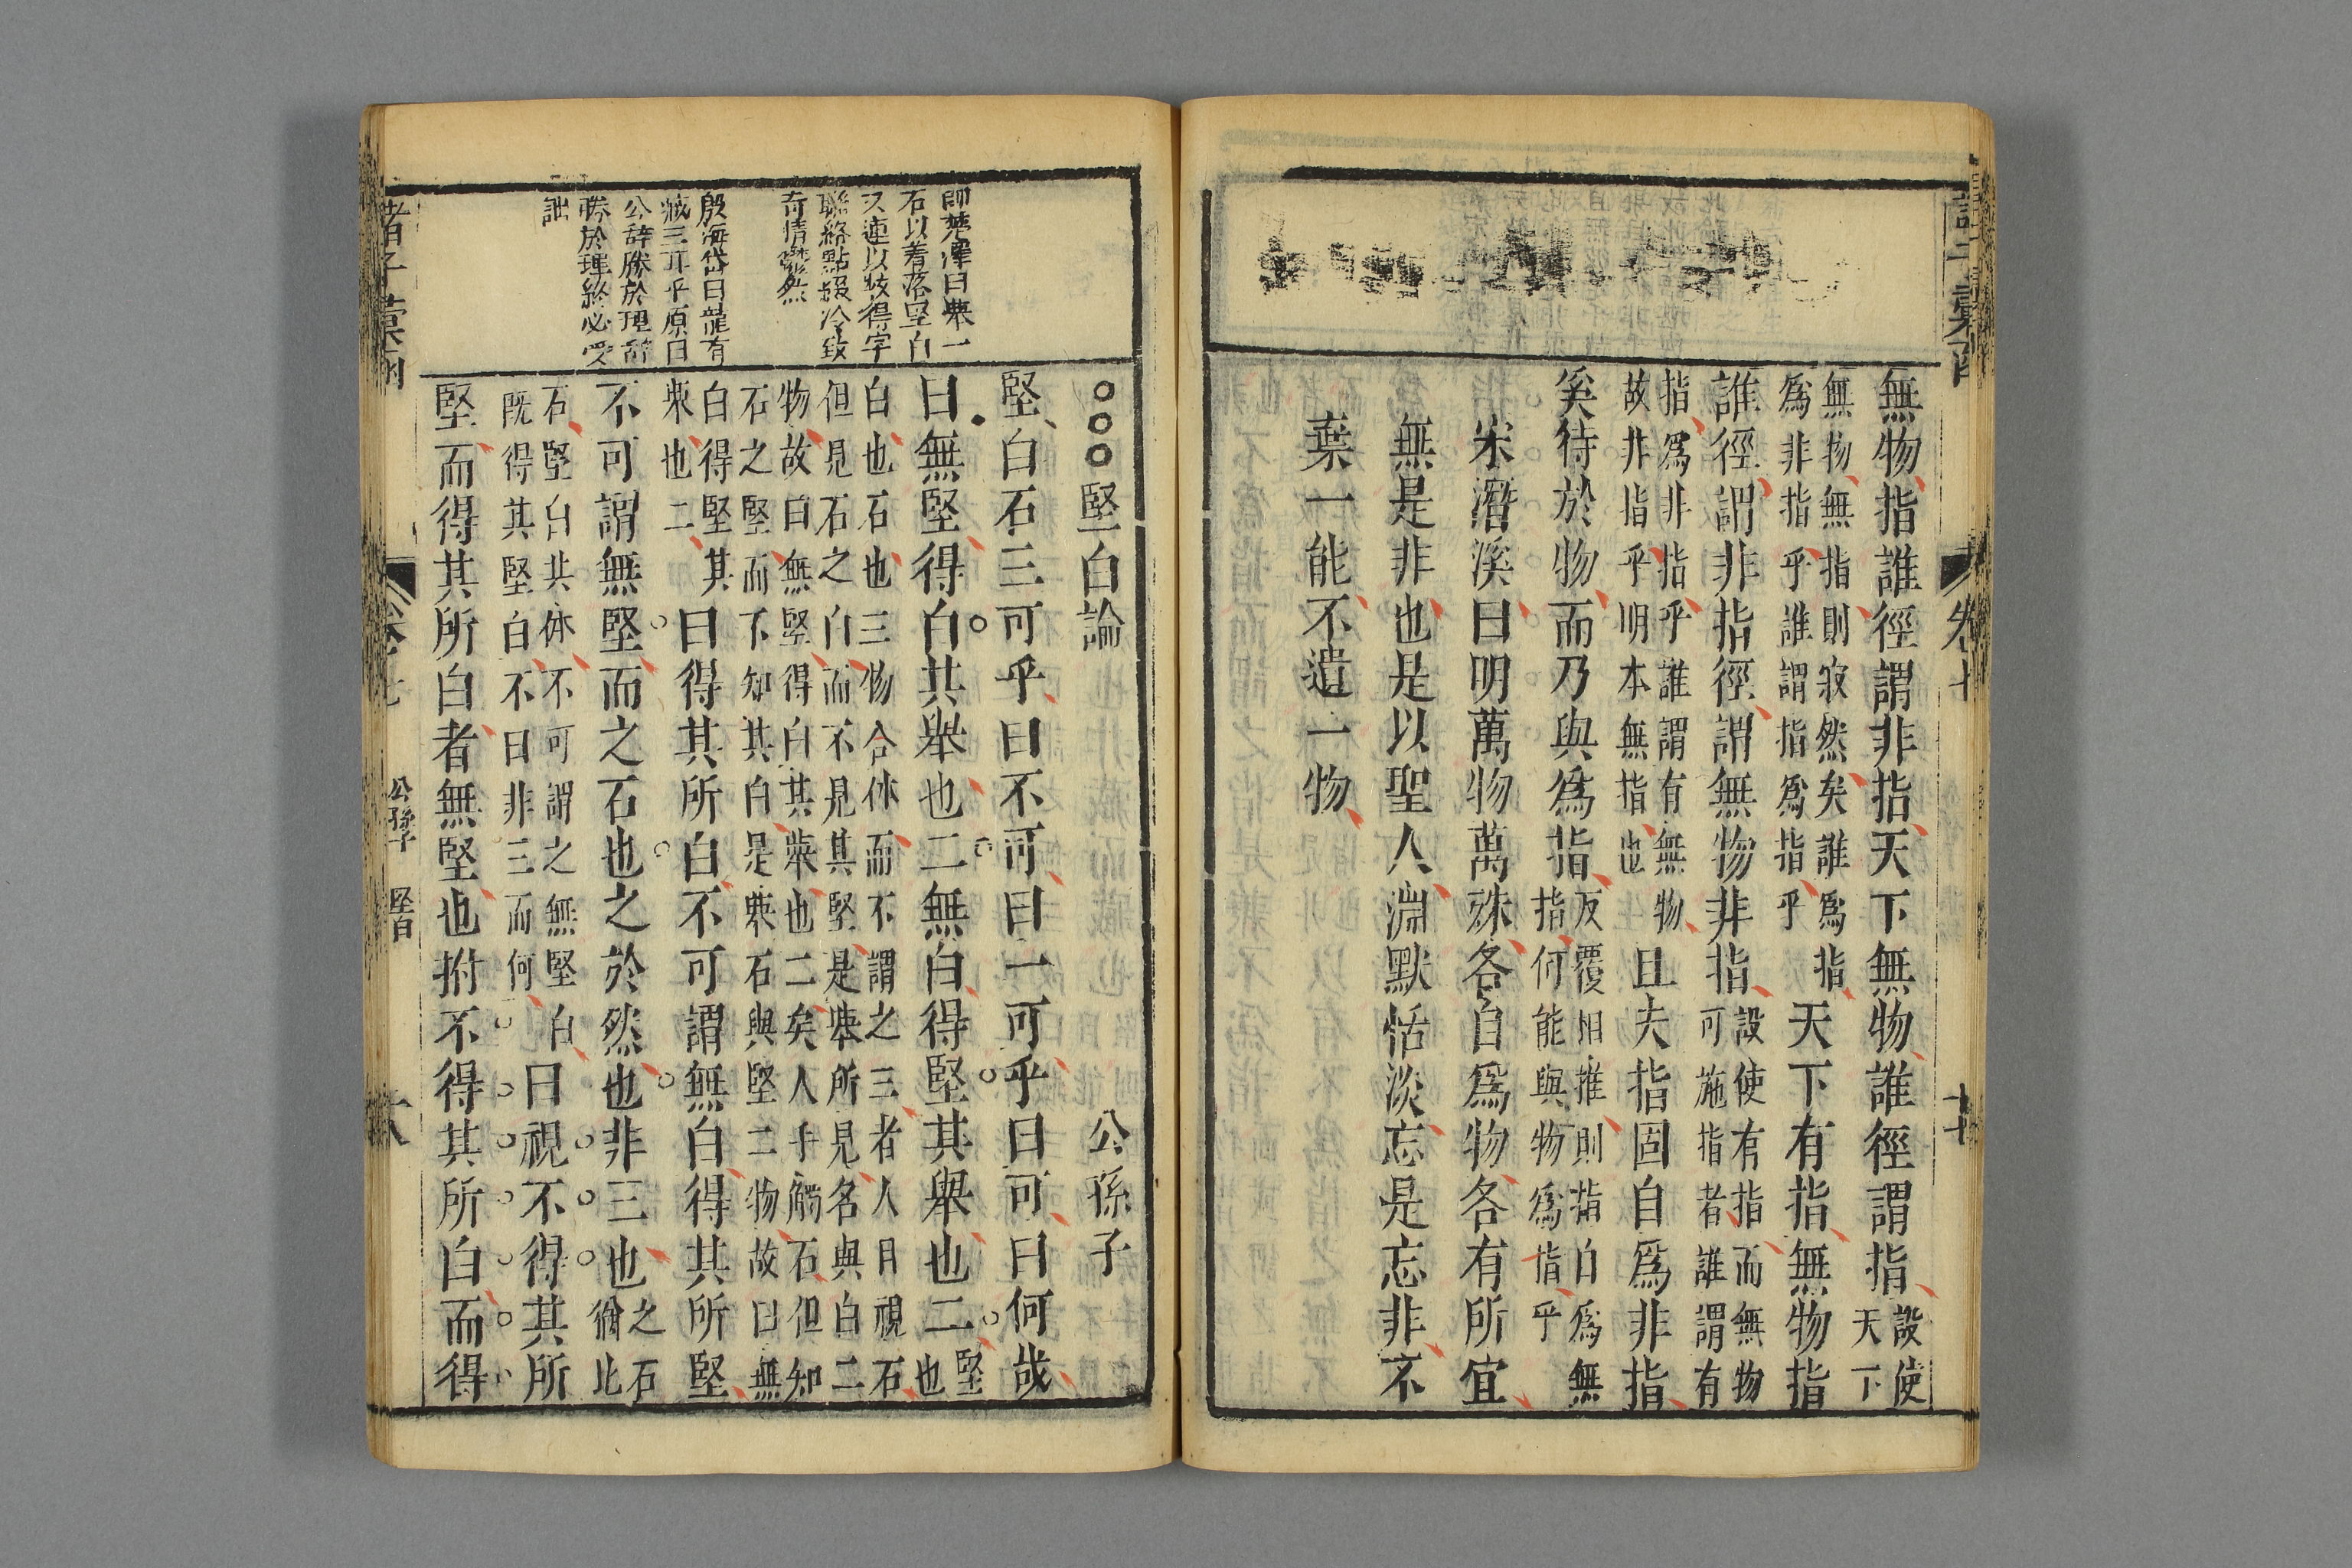 無物指誰徑謂非指天下無物誰徑謂指設使天下
無物無指則寂然矣誰為指為非指乎誰謂指為指乎天下有指無物指
誰徑謂非指徑謂無物非指設使有指而無物可施指者誰謂有
指為非指乎誰謂有無物故非指乎明本無指也且夫指固自為非指
奚待於物而乃與為指反覆相推則指自為無指何能與物為指乎
宋潛溪曰明萬物萬殊各自為物各有所宜
無是非也是以聖人淵默恬淡忘是忘非不
棄一能不遺一物
諸子彙函
卷七
師楚澤曰舉一
石以着落堅白
又連以玅得字
聯絡點綴冷致
奇情燦然
殷海岱曰龍有
臧三耳平原曰
公辞勝於理辞
勝於理終必受
詘
○○○堅白論 公孫子
堅白石三可乎曰不可曰一可乎曰可曰何哉
曰無堅得白其舉也二無白得堅其舉也二堅也
白也石也三物合体而不謂之三者人目視石但見石之白而不見其堅是舉所見名與白二
物故曰無堅得白其舉也二矣人手觸石但知石之堅而不知其白是舉石與堅二物故曰無
白得堅其舉也二曰得其所白不可謂無白得其所堅
不可謂無堅而之石也之於然也非三也之石猶此
石堅白共体不可謂之無堅白既得其堅白不曰非三而何曰視不得其所
堅而得其所白者無堅也拊不得其所白而得
諸子彙函
卷七
公孫子
堅白